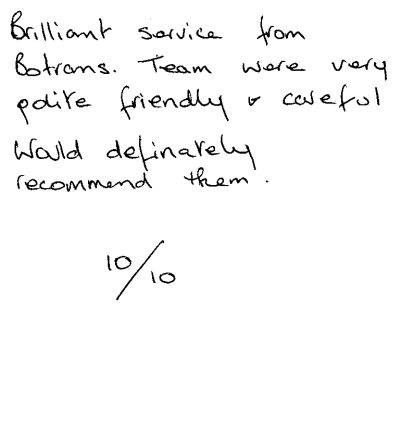 Brilliant service from
Botrans. Team were very
polite friendly & careful
Would definately
recommend them.
10/10